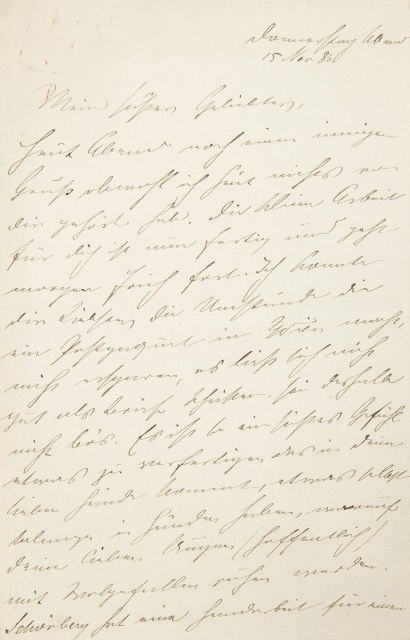 Donnerstag Abend
15 Nov 83
Mein süßer Geliebter,
Heut Abend noch einen innigen
Gruß obwohl ich heut nichts von
dir gehört hab. Die kleine Arbeit
für dich ist nun fertig und geht
morgen früh fort. Ich konnte
dir Liebling die Umstände die
ein Postpaquet in Wien macht,
nicht ersparen, es ließ sich nicht
gut als schicken. Sei deshalb
nicht bös. Es ist so ein süßes Gefühl
etwas zu verfertigen das in deine
lieben Hände kommt, etwas selbst
in Händen haben, worauf
deine lieben Augen (hoffentlich)
mit Wolgefallen ruhen werden.
hat eine Handarbeit für einen